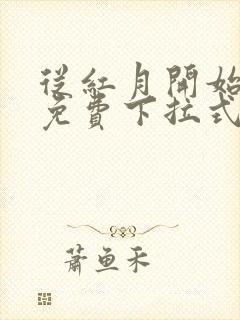 從紅月開始
免費下拉式
蕭魚禾